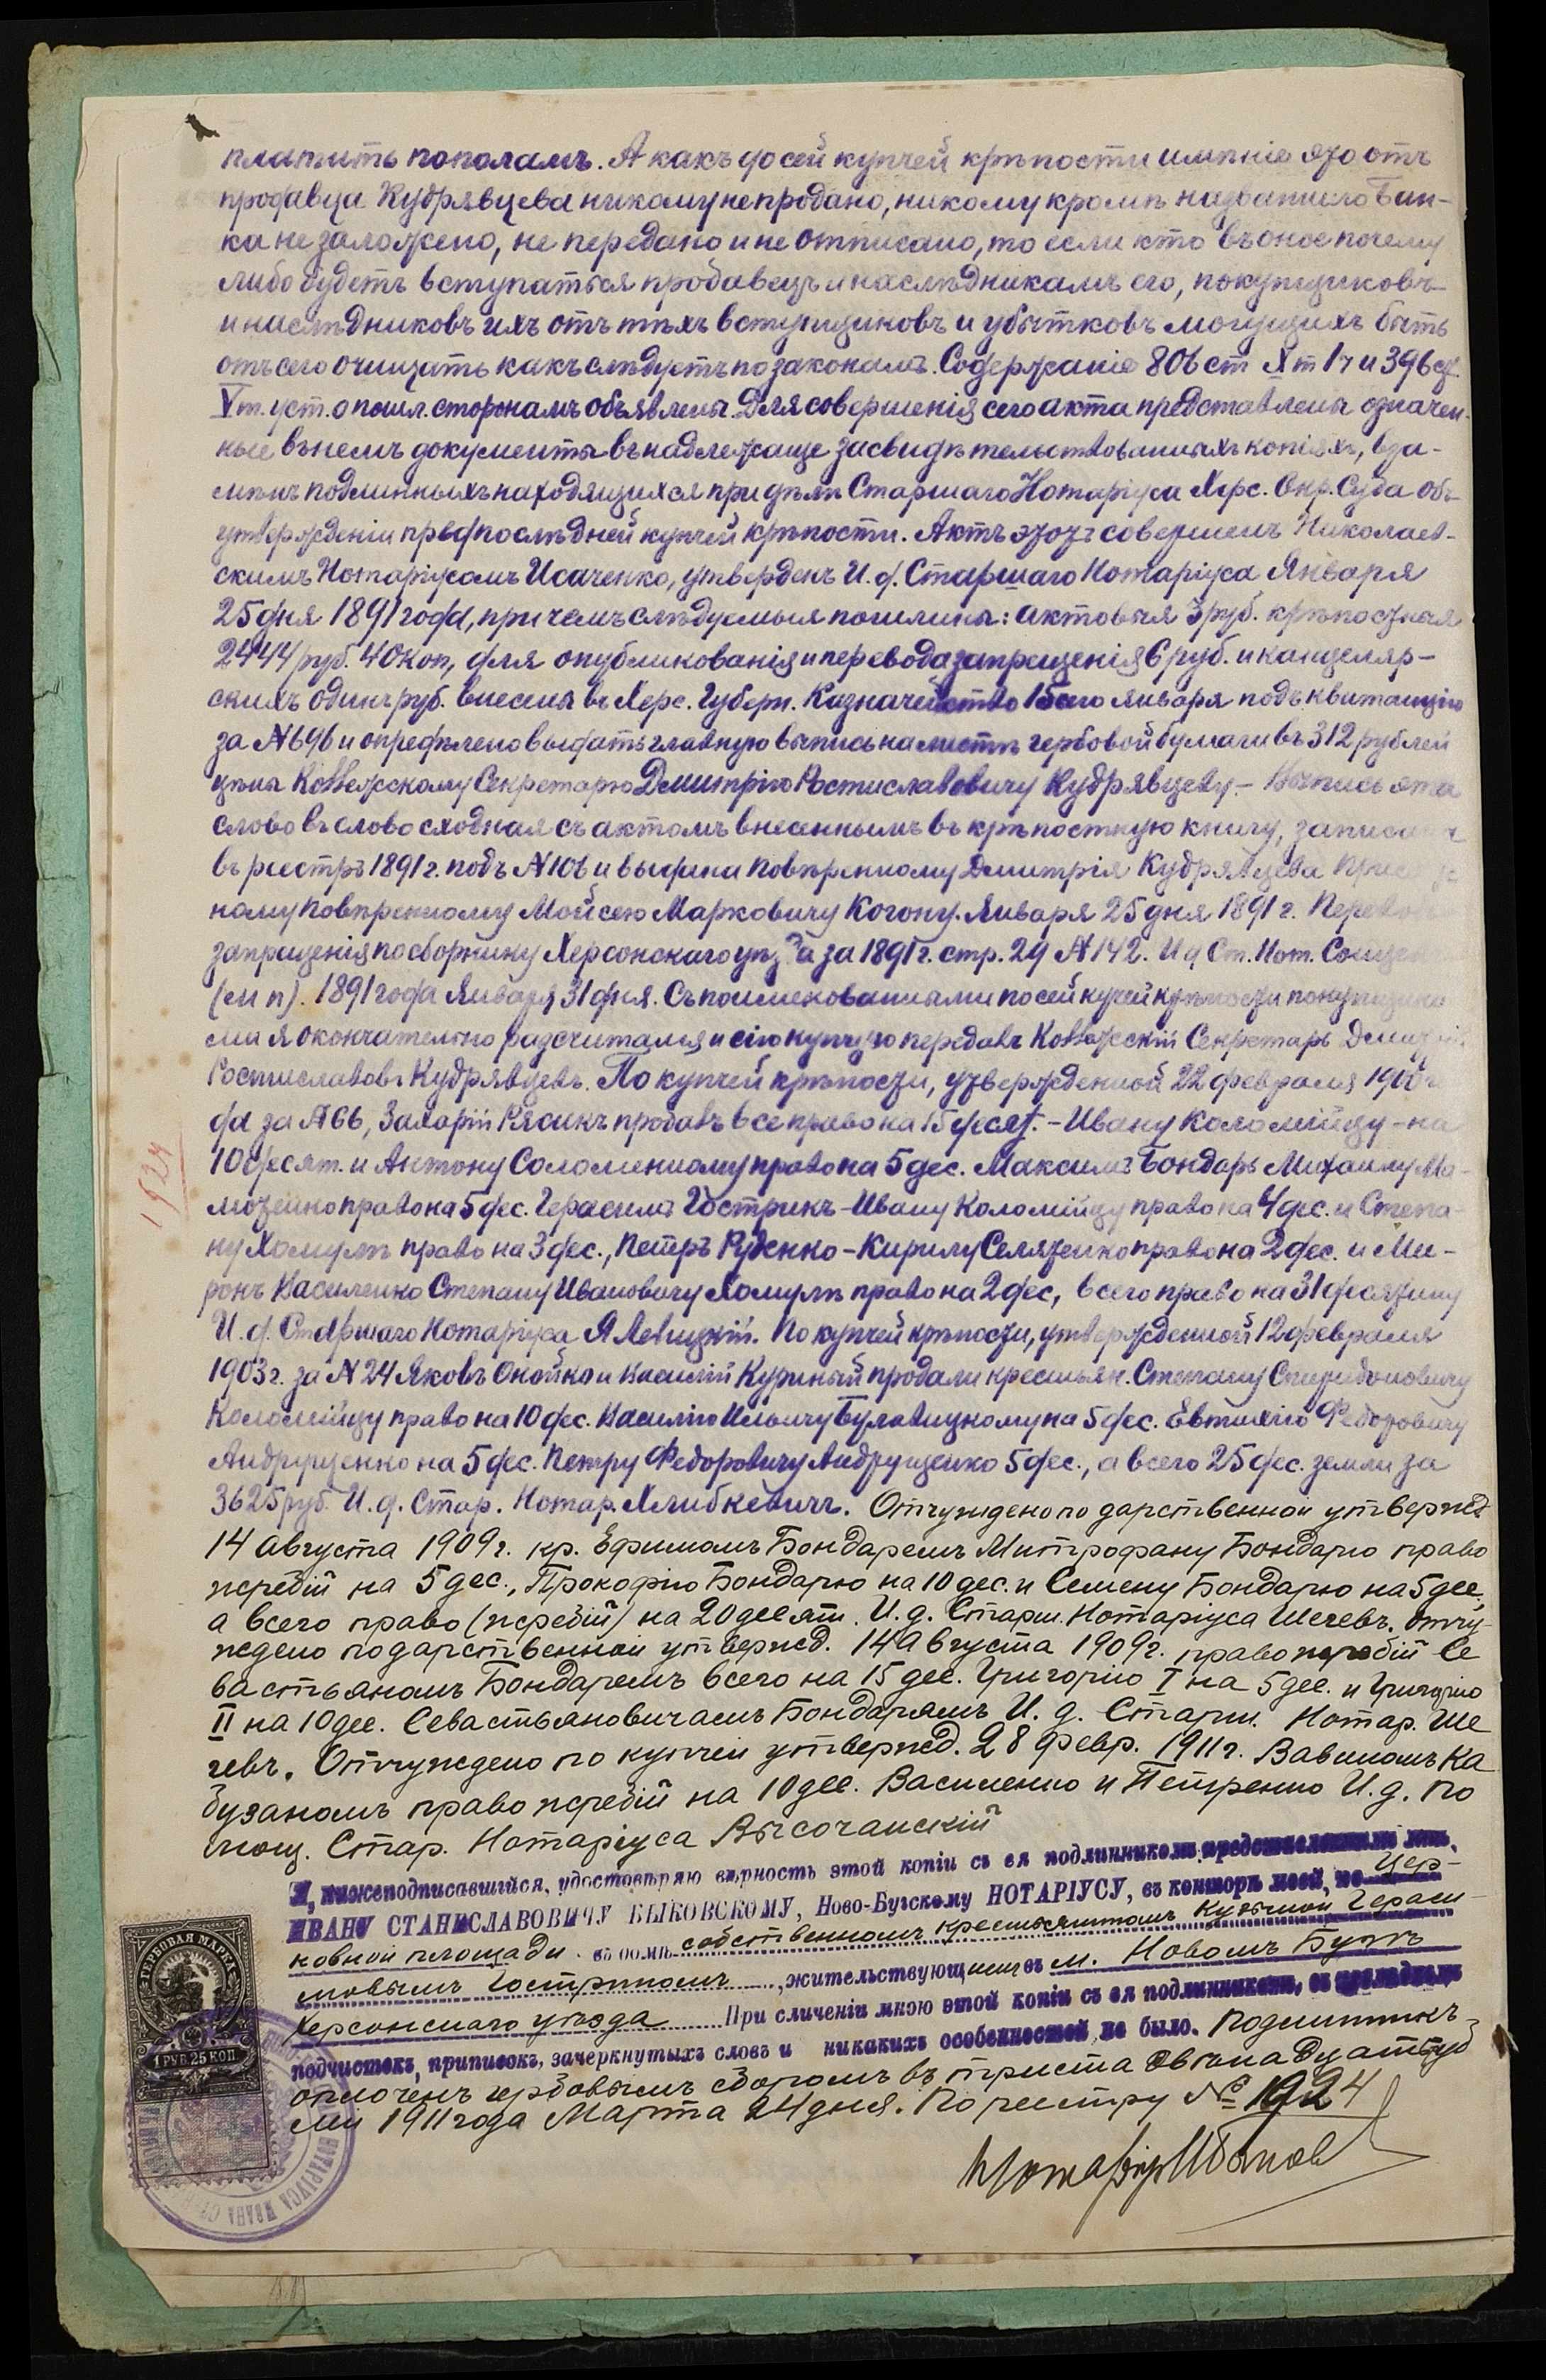 платить пополамъ. А какъ до сей купчей крѣпости имѣніе это отъ
продавца Кудрявцева никому не продано, никому кромѣ названнаго Бан-
ка не заложено, не передано и не отписано, то если кто въ оное почему
либо будетъ вступаться продавецъ и наслѣдникамъ его, покупщиковъ
и наслѣдниковъ ихъ отъ тѣхъ вступщиковъ и убытковъ могущихъ быть
отъ сего очищать какъ слѣдуетъ по законамъ. Содержаніе 806 ст X т 1 ч и 396 ст
V т. уст. о пошл. сторонамъ объявлены. Для совершенія сего акта представлены означен-
ные въ немъ документы въ надлежаще засвидѣтельствованныхъ копіяхъ, вза-
мѣнъ подлинныхъ находящихся при дѣлѣ Старшаго Нотаріуса Херс. Окр. Суда объ
утвержденіи предпослѣдней купчей крѣпости. Актъ этотъ совершенъ Николаев-
скимъ Нотаріусомъ Исаченко, утвержденъ И. д. Старшаго Нотаріуса Января
25 дня 1891 года, при чемъ слѣдуемыя пошлины: актовыя 3 руб. крѣпостныя
2444 руб. 40 коп, для опубликованія и перевода запрещенія 6 руб. и канцеляр-
скихъ одинъ руб. внесены въ Херс. Губерн. Казначейство 15 сего января подъ квитанцію
за № 696 и опредѣлено выдать главную выпись на листѣ гербовой бумаги въ 312 рублей
цѣны Коллежскому Секретарю Дмитрію Ростиславовичу Кудрявцеву. - Выпись эта
слово въ слово сходная съ актомъ внесеннымъ въ крѣпостную книгу, записана
въ реестръ 1891 г. подъ № 106 и выдана повѣренному Дмитрія Кудрявцева
ному Повѣренному Мойсею Марковичу Когону. Января 25 дня 1891 г.
запрещенія по сборнику Херсонскаго уѣзда за 1891 г. стр. 29 № 142. И д Ст. Нот.
(м п). 1891 года Января 31 дня. Съ поименованными по сей купчей крѣпости покупщика
ми я окончательно разсчитался и сію купчую передалъ Коллежскій Секретарь
Ростиславовъ Кудрявцевъ. По купчей крѣпости, утвержденной 22 февраля
да за № 66, Захарій Рясикъ продалъ все право на 15 десят. - Ивану Коломійцу - на
10 десят. и Антону Соломенному право на 5 дес. Максимъ Бондарь Михаилу Ма-
мозенко право на 5 дес. Герасимъ Гострикъ - Ивану Коломійцу право на 4 дес. и Степа-
ну Хомулѣ право на 3 дес., Петръ Руденко - Кирилу Селязенко право на 2 дес. и Ми-
ронъ Василенко Степану Ивановичу Хомулѣ право на 2 дес, всего право на 31 десятину
И. д. Старшаго Нотаріуса Я Левицкій. По купчей крѣпости, утвержденной 12 февраля
1903 г. за № 24 Яковъ Онойко и Василій Куриный продали крестьян. Степану Спиридоновичу
Коломійцу право на 10 дес. Василію Ильичу Булавицкому на 5 дес. Евтихію Федоровичу
Андрущенко на 5 дес. Петру Федоровичу Андрущенко 5 дес., а всего 25 дес. земли за
3625 руб. И. д. Стар. Нотар. Хлибкевичъ. Отчуждено по дарственной утвержд
14 августа 1909 г. кр. Ефимомъ Бондаремъ Митрофану Бондарю право
жребій на 5 дес., Прокофію Бондарю на 10 дес. и Семену Бондарю на 5 дес,
а всего право (жребій) на 20 десят. И. д. Старш. Нотаріуса Шегевъ. Отчу-
ждено по дарственной утвержд. 14 августа 1909 г. право жребій Се
вастьяномъ Бондаремъ всего на 15 дес. Григорію I на 5 дес. и Григорію
II на 10 дес. Севастьяновичамъ Бондарямъ И. д. Старш. Нотар. Ше
гевъ. Отчуждено по купчей утвержд. 28 февр. 1911 г. Вавиломъ Ка
бузаномъ право жребій на 10 дес. Василенко и Петренко И. д. По
мощ. Стар. Нотаріуса Высочанскій
Я, нижеподписавшійся, удостовѣряю вѣрность этой копіи съ ея подлинникомъ представленнымъ мнѣ,
ИВАНУ СТАНИСЛАВОВИЧУ БЫКОВСКОМУ, Ново-Бугскому НОТАРІУСУ, въ конторѣ моей, по Цер-
ковной площади въ домѣ собственномъ крестьяниномъ Кузьмой Гераси-
мовымъ Гострикомъ, жительствующимъ въ м. Новомъ Бугѣ
Херсонскаго уѣзда При сличеніи мною этой копіи съ ея подлинникомъ, въ послѣднемъ
подчистокъ, приписокъ, зачеркнутыхъ словъ и никакихъ особенностей не было. Подлинникъ
оплоченъ гербовымъ сборомъ въ триста двѣнадцать руб
лей 1911 года Марта 24 дня. По реестру № 1924
1924
ГЕРБОВАЯ МАРКА
1 РУБ. 25 КОП